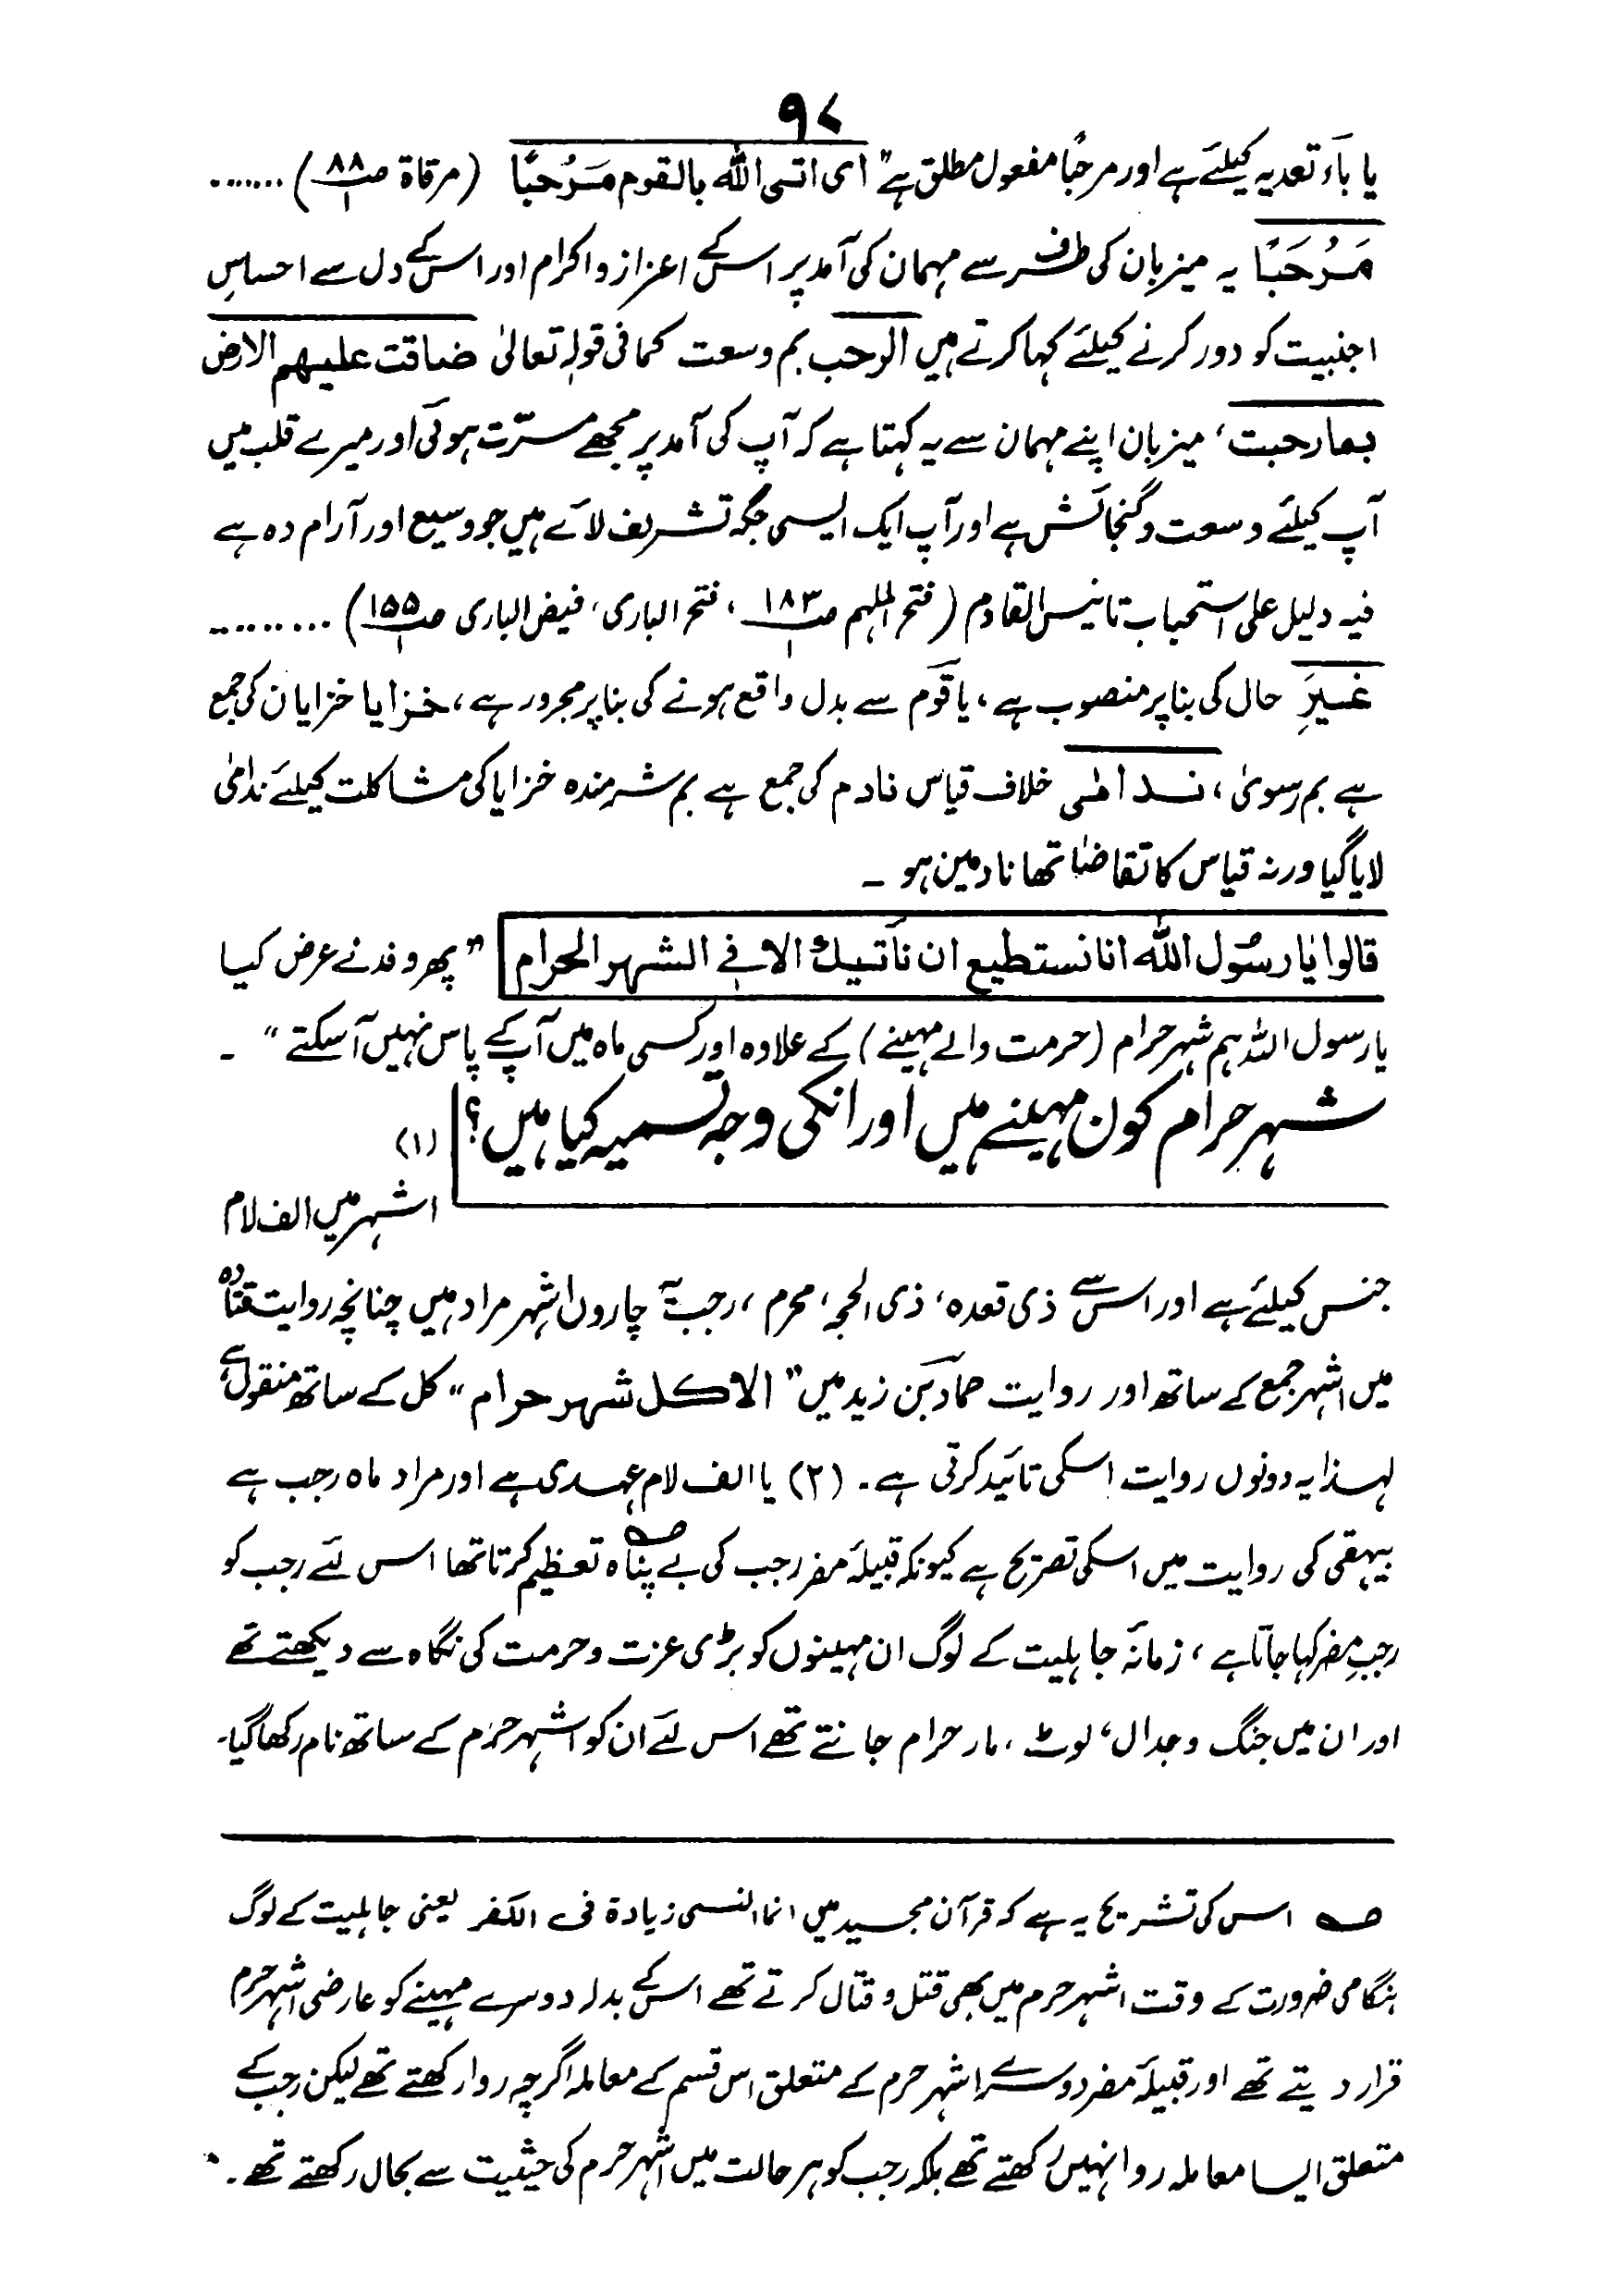 ۹۷
یا باَء تعدیہ کیلئے ہے اور مرحبًا مفعول مطلق ہے" ای اتی اللہ بالقوم مَرْحبًا (مرقاۃ ص۸۸/۱) .......
مَرْحَبًا یہ میزبان کی طرف سے مہمان کی آمد پر اس کے اعزاز و اکرام اور اس کے دل سے احساسِ
اجنبیت کو دور کرنے کیلئے کہا کرتے ہیں الرحب بم وسعت کما فی قولہ تعالیٰ ضاقت علیہم الارض
بما رحبت، میزبان اپنے مہمان سے یہ کہتا ہے کہ آپ کی آمد پر مجھے مسرّت ہوئی اور میرے قلب میں
آپ کیلئے وسعت و گنجائش ہے اور آپ ایک ایسی جگہ تشریف لائے ہیں جو وسیع اور آرام دہ ہے
فیہ دلیل علی استحباب تانیس القادم (فتح الملہم ص۱۸۳/۱، فتح الباری، فیض الباری ص۱۵۵/۱) .........
غیرَِ حال کی بنا پر منصوب ہے، یا قوم سے بدل واقع ہونے کی بنا پر مجرور ہے، خزایا خزایان کی جمع
ہے بم رسویٰ، ندامٰی خلاف قیاس نادم کی جمع ہے بم شرمندہ خزایا کی مشاکلت کیلئے ندامیٰ
لایا گیا ورنہ قیاس کا تقاضا تھا نادمین ہو ـ
قالوا یٰا رسُول اللہ انا نستطیع ان نأتیك الا فی الشہر الحرام " پھر وفد نے عرض کیا
یا رسول اللہ ہم شہر حرام (حرمت والے مہینے) کے علاوہ اور کسی ماہ میں آپ کے پاس نہیں آسکتے " ـ
شہر حرام کون مہینے ہیں اور انکی وجہ تسمیہ کیا ہیں؟ (۱)
اشہر میں الف لام
جنس کیلئے ہے اور اس سے ذی قعدہ، ذی الحجہ، محرم، رجبؔ چاروں اشہر مراد ہیں چنانچہ روایت قتادہ
میں اشہر جمع کے ساتھ اور روایت حماد بن زید میں " الا کل شہر حرام " کل کے ساتھ منقول ہے
لہذا یہ دونوں روایت اسکی تائید کرتی ہے۔ (۲) یا الف لام عہدی ہے اور مراد ماہ رجب ہے
بیہقی کی روایت میں اسکی تصریح ہے کیونکہ قبیلۂ مضر رجب کی بے پناہ؃ تعظیم کرتا تھا اس لئے رجب کو
رجبِ مضر کہا جاتا ہے، زمانۂ جاہلیت کے لوگ ان مہینوں کو بڑی عزت و حرمت کی نگاہ سے دیکھتے تھے
اور ان میں جنگ وجدال، لوٹ، مار حرام جانتے تھے اس لئے ان کو اشہر حرُم کے ساتھ نام رکھا گیا۔
؃ اس کی تشریح یہ ہے کہ قرآن مجید میں انما النسی زیادۃ فی الکفر یعنی جاہلیت کے لوگ
ہنگامی ضرورت کے وقت اشہر حرم میں بھی قتل و قتال کرتے تھے اس کے بدلہ دوسرے مہینے کو عارضی اشہر حرم
قرار دیتے تھے اور قبیلۂ مضر دوسرے اشہر حرم کے متعلق اس قسم کے معاملہ اگرچہ روا رکھتے تھے لیکن رجب کے
متعلق ایسا معاملہ روا نہیں رکھتے تھے بلکہ رجب کو ہر حالت میں اشہر حرم کی حیثیت سے بحال رکھتے تھے۔